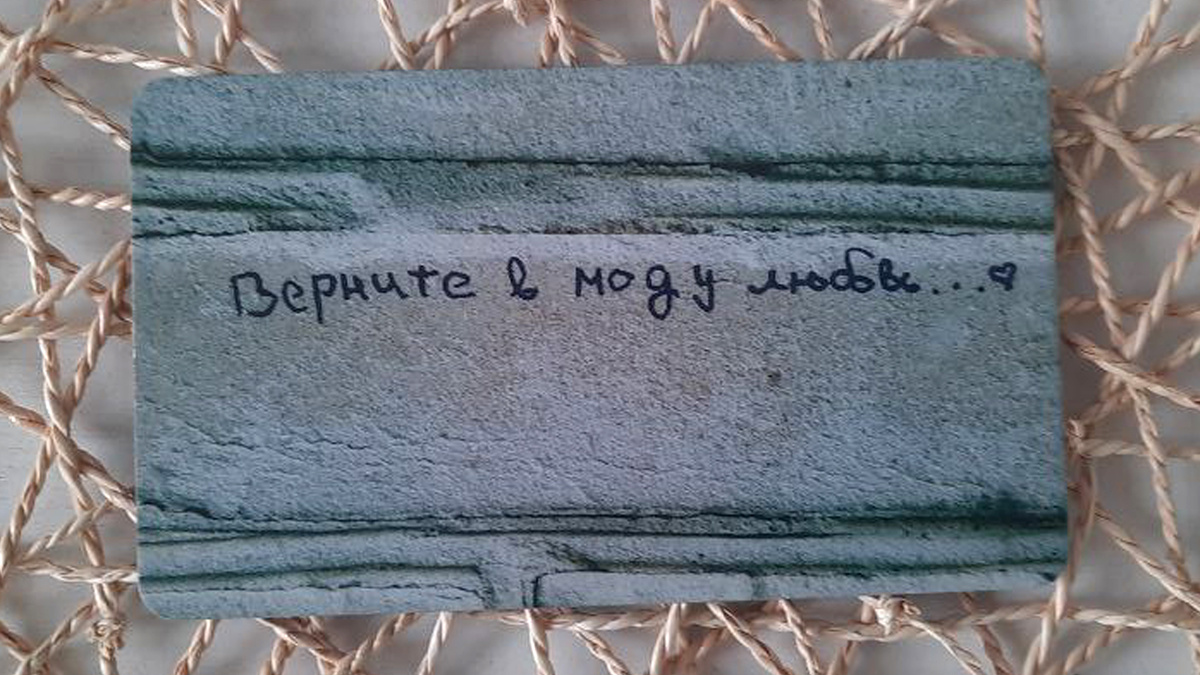 Верните в моду любовь...♡